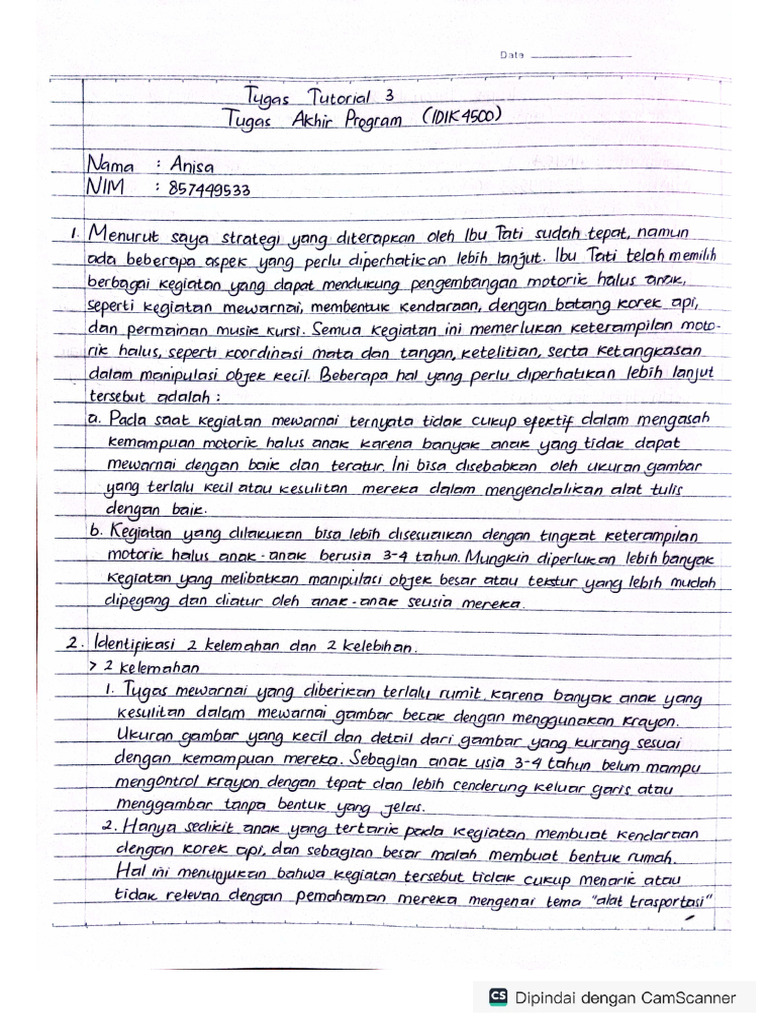 Date
Tugas Tutorial 3
Tugas Akhir Program (IDIK4500)
Nama : Anisa
NIM : 857449533
1. Menurut saya strategi yang diterapkan oleh Ibu Tati sudah tepat, namun
ada beberapa aspek yang perlu diperhatikan lebih lanjut. Ibu Tati telah memilih
berbagai kegiatan yang dapat mendukung pengembangan motorik halus anak,
seperti kegiatan mewarnai, membentuk kendaraan, dengan batang korek api,
dan permainan musik kursi. Semua kegiatan ini memerlukan keterampilan moto-
rik halus, seperti koordinasi mata dan tangan, ketelitian, serta ketangkasan
dalam manipulasi objek kecil. Beberapa hal yang perlu diperhatikan lebih lanjut
tersebut adalah :
a. Pada saat kegiatan mewarnai ternyata tidak cukup efektif dalam mengasah
kemampuan motorik halus anak karena banyak anak yang tidak dapat
mewarnai dengan baik dan teratur. Ini bisa disebabkan oleh ukuran gambar
yang terlalu kecil atau kesulitan mereka dalam mengendalikan alat tulis
dengan baik.
b. Kegiatan yang dilakukan bisa lebih disesuaikan dengan tingkat keterampilan
motorik halus anak-anak berusia 3-4 tahun. Mungkin diperlukan lebih banyak
kegiatan yang melibatkan manipulaci objek besar atau tekstur yang lebih mudah
dipegang dan diatur oleh anak-anak seusia mereka.
2. Identifikasi 2 kelemahan dan 2 kelebihan.
> 2 kelemahan
1. Tugas mewarnai yang diberikan terlalu rumit, karena banyak anak yang
kesulitan dalam mewarnai gambar becak dengan menggunakan krayon.
Ukuran gambar yang kecil dan detail dari gambar yang kurang sesuai
dengan kemampuan mereka. Sebagian anak usia 3-4 tahun belum mampu
mengontrol krayon dengan tepat dan lebih cenderung keluar garis atau
menggambar tanpa bentuk yang jelas.
2. Hanya sedikit anak yang tertarik pada kegiatan membuat kendaraan
dengan korek api, dan sebagian besar malah membuat bentuk rumah.
Hal ini menunjukan bahwa kegiatan tersebut tidak cukup menarik atau
tidak relevan dengan pemahaman mereka mengenai tema "alat trasportasi"
CS Dipindai dengan CamScanner